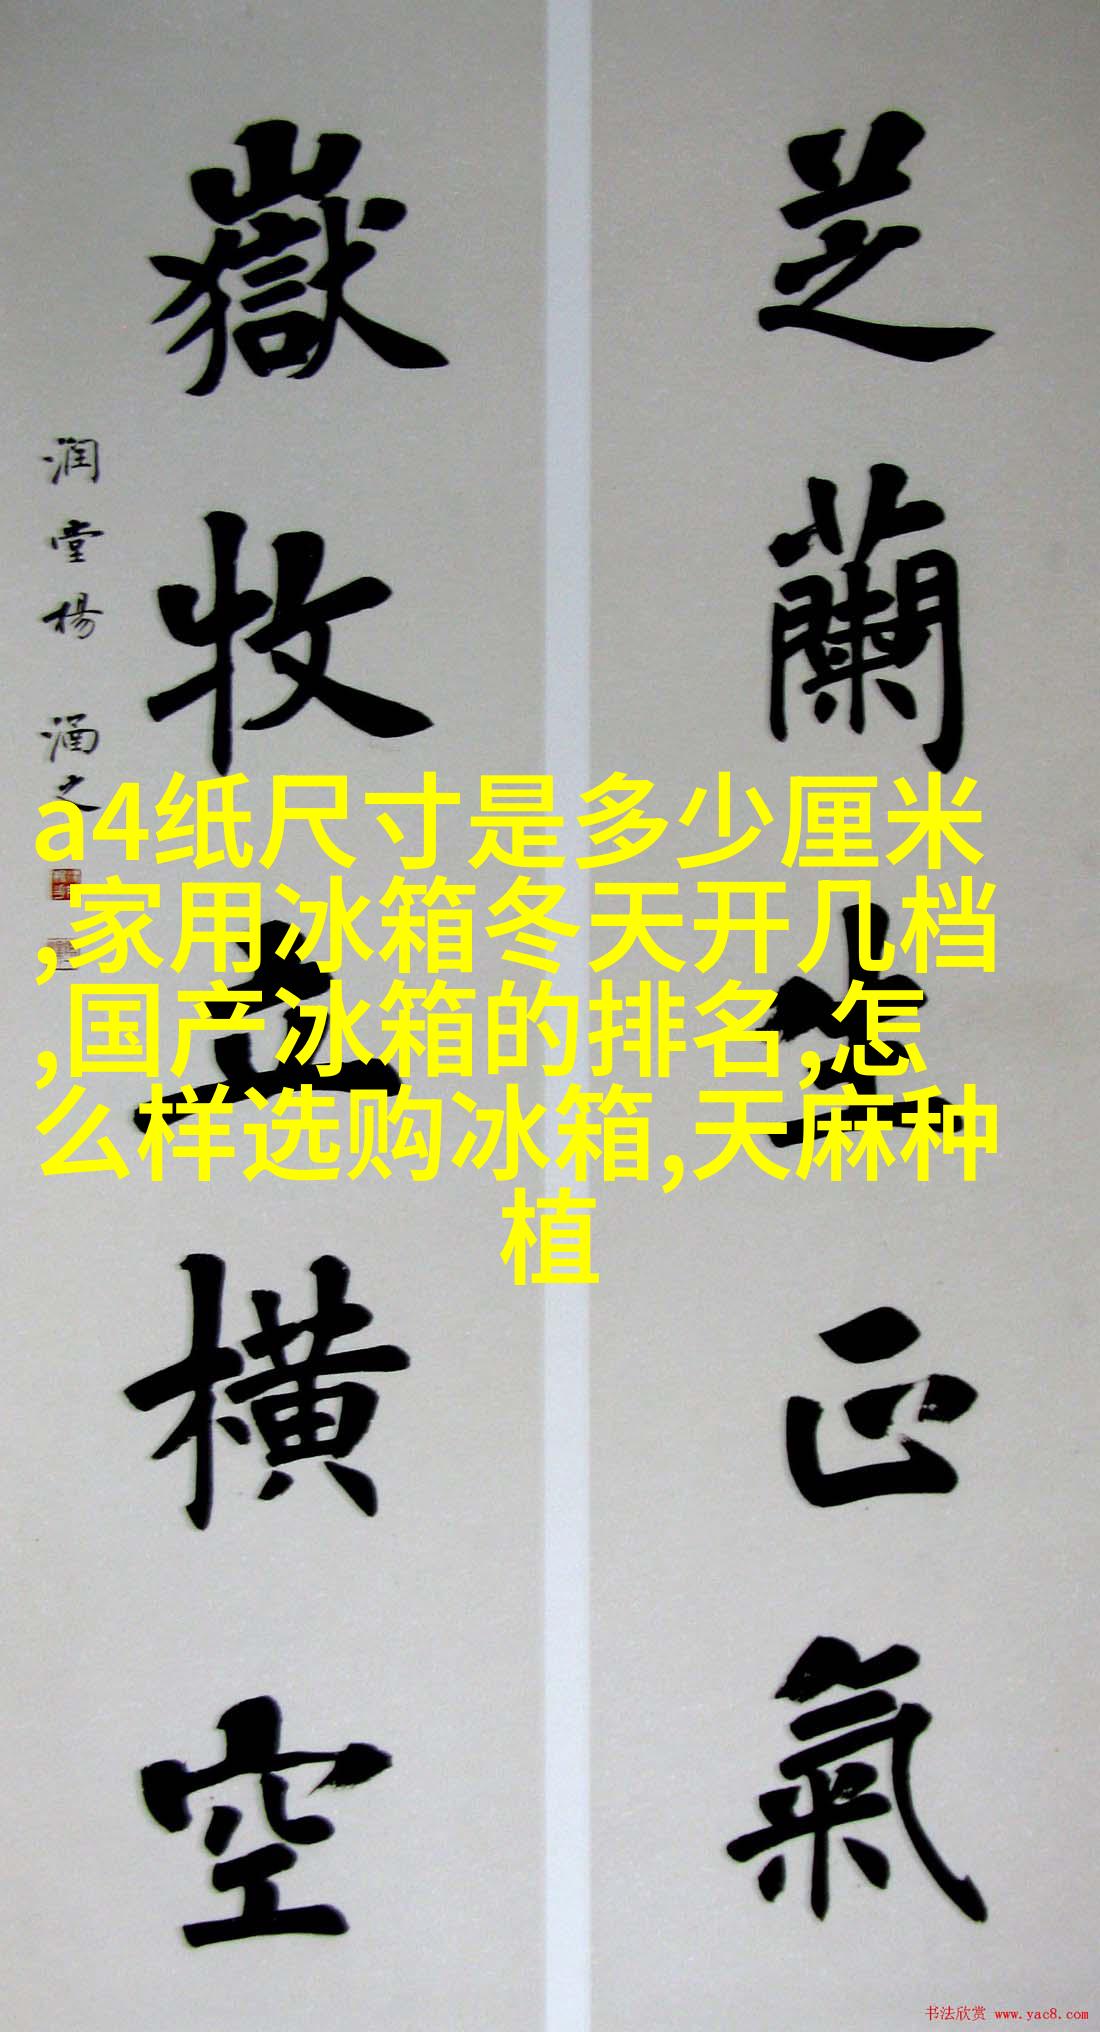 芝蘭生正氣
嶽牧立橫空
潤堂楊涵之
a4纸尺寸是多少厘米
,家用冰箱冬天开几档
,国产冰箱的排名,怎
么样选购冰箱,天麻种
植
书法欣赏 www.yac8.com